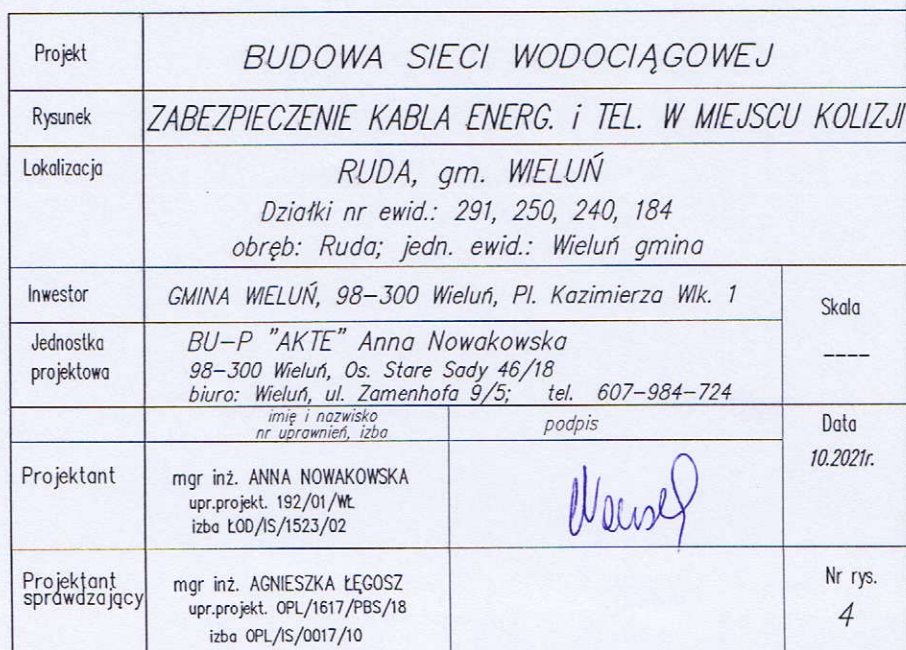 Projekt
BUDOWA SIECI WODOCIĄGOWEJ
Rysunek
ZABEZPIECZENIE KABLA ENERG. i TEL. W MIEJSCU KOLIZJI
Lokalizacja
RUDA, gm. WIELUŃ
Działki nr ewid.: 291, 250, 240, 184
obręb: Ruda; jedn. ewid.: Wieluń gmina
Inwestor
GMINA WIELUŃ, 98-300 Wieluń, Pl. Kazimierza Wlk. 1
Skala
----
Jednostka
projektowa
BU-P "AKTE" Anna Nowakowska
98-300 Wieluń, Os. Stare Sady 46/18
biuro: Wieluń, ul. Zamenhofa 9/5; tel. 607-984-724
imię i nazwisko
nr uprawnień, izba
podpis
Data
10.2021r.
Projektant
mgr inż. ANNA NOWAKOWSKA
upr.projekt. 192/01/WŁ
izba ŁOD/IS/1523/02
Projektant
sprawdzający
mgr inż. AGNIESZKA ŁĘGOSZ
upr.projekt. OPL/1617/PBS/18
izba OPL/IS/0017/10
Nr rys.
4